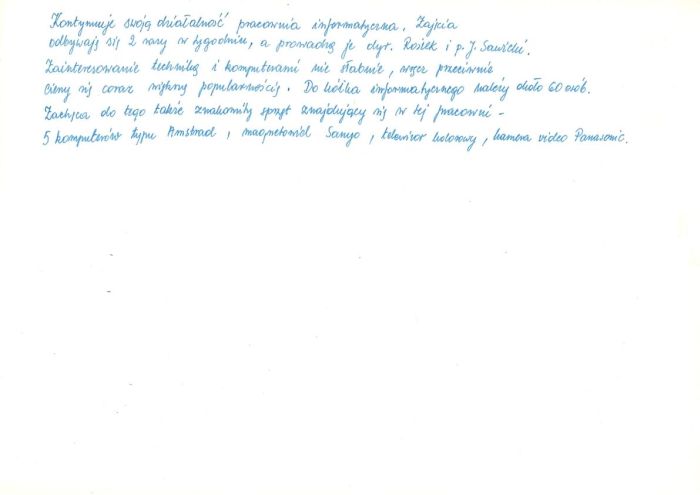 Kontynuuje swoją działalność pracownia informatyczna. Zajęcia
odbywają się 2 razy w tygodniu, a prowadzą je dyr. Rosiek i p. J. Sawicki.
Zainteresowanie techniką i komputerami nie słabnie, wręcz przeciwnie
cieszy się coraz większą popularnością. Do kółka informatycznego należy około 60 osób.
Zachęca do tego także znakomity sprzęt znajdujący się w tej pracowni -
5 komputerów typu Amstrad, magnetowid Sanyo, telewizor kolorowy, kamera video Panasonic.